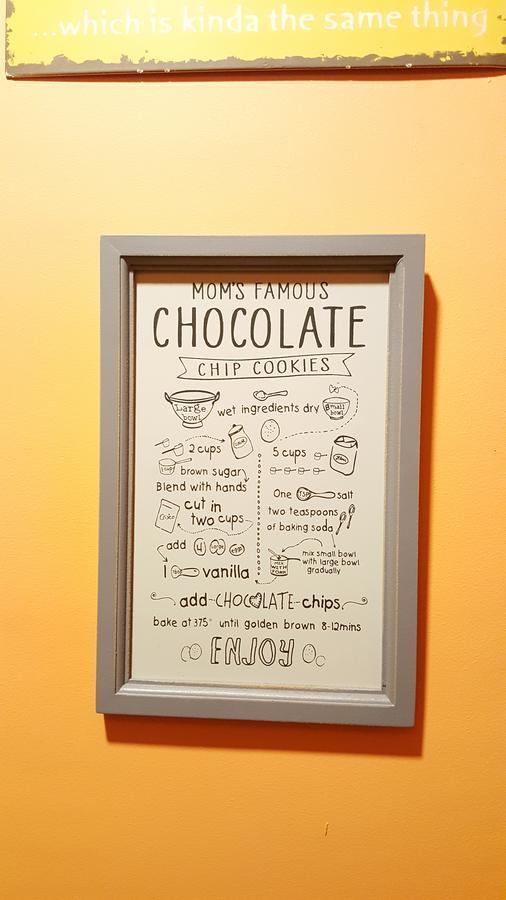 ...which is kinda the same thing
MOM'S FAMOUS
CHOCOLATE
CHIP COOKIES
Large bowl
wet ingredients dry
Small bowl
2 cups
brown sugar
Blend with hands
Crisco
cut in
two cups
add 4 eggs
1 TSP vanilla
5 cups
One TSP salt
two teaspoons
of baking soda
MIX WITH FORK
mix small bowl
with large bowl
gradually
add CHOCOLATE chips
bake at 375° until golden brown 8-12mins
ENJOY